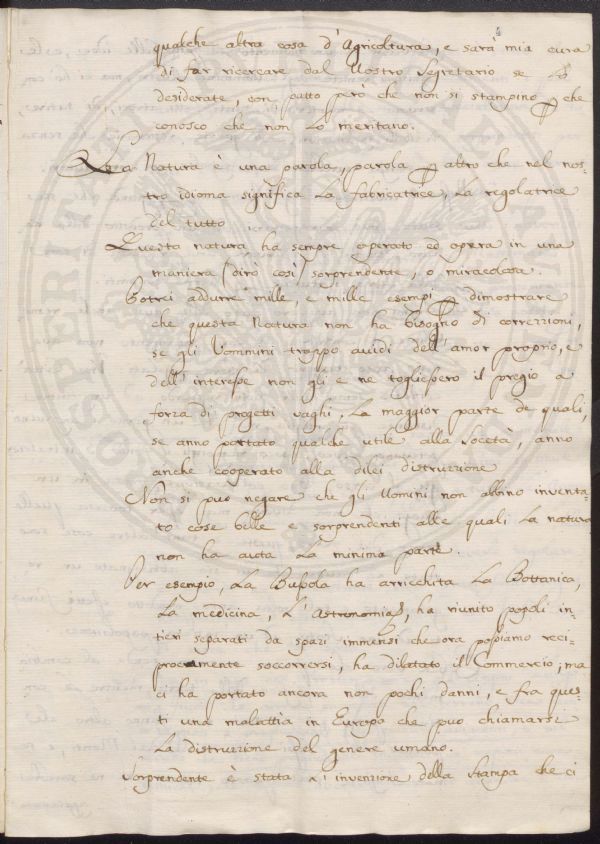 4
qualche altra cosa d'Agricoltura, e sarà mia cura
di far ricercare dal Vostro Segretario se Lo
desiderate, con patto però che non si stampino che
conosco che non Lo meritano.
La Natura è una parola, parola altro che nel nos-
tro idioma significa La fabricatrice, La regolatrice
del tutto
Questa natura ha sempre operato ed opera in una
maniera (dirò così) sorprendente, o miracolosa.
Potrei addurre mille, e mille esempi dimostrare
che questa Natura non ha bisogno di correzzioni,
se gli Uommini troppo avidi dell'amor proprio, e
dell'interesse non gli e ne togliessero il pregio a
forza di progetti vaghi. La maggior parte de quali,
se anno portato qualche utile alla Società, anno
anche cooperato alla dilei distruzzione
Non si puo negare che gli Uomini non abbino inventa-
to cose belle e sorprendenti alle quali La natura
non ha auta La minima parte.
Per esempio, La Bussola ha arricchita La Bottanica,
La medicina, L'Astronomia, ha riunito popoli in-
tieri separati da spazi immensi che ora possiamo reci-
procamente soccorrersi, ha dilatato il Commercio; ma
ci ha portato ancora non pochi danni, e fra ques-
ti una malattia in Europa che puo chiamarsi
La distruzzione del genere umano.
Sorprendente è stata L'invenzione della Stampa che ci
PROSPERITATI